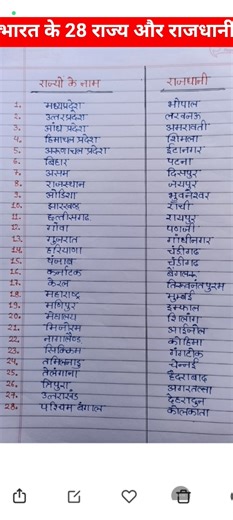 भारत के 28 राज्य और राजधानी
राज्यों के नाम राजधानी
1. मध्यप्रदेश भोपाल
2. उत्तरप्रदेश लखनऊ
3. आंध्र प्रदेश अमरावती
4. हिमाचल प्रदेश शिमला
5. अरुणाचल प्रदेश ईटानगर
6. बिहार पटना
7. असम दिसपुर
8. राजस्थान जयपुर
9. ओडिशा भुवनेश्वर
10. झारखण्ड राँची
11. छत्तीसगढ़ रायपुर
12. गोवा पणजी
13. गुजरात गाँधीनगर
14. हरियाणा चंडीगढ़
15. पंजाब चंडीगढ़
16. कर्नाटक बेंगलुरु
17. केरल तिरुवनंतपुरम
18. महाराष्ट्र मुम्बई
19. मणिपुर इम्फाल
20. मेघालय शिलांग
21. मिजोरम आईजोल
22. नागालैण्ड कोहिमा
23. सिक्किम गंगटोक
24. तमिलनाडु चेन्नई
25. तेलंगाना हैदराबाद
26. त्रिपुरा अगरतल्ला
27. उत्तराखंड देहरादून
28. पश्चिम बंगाल कोलकाता